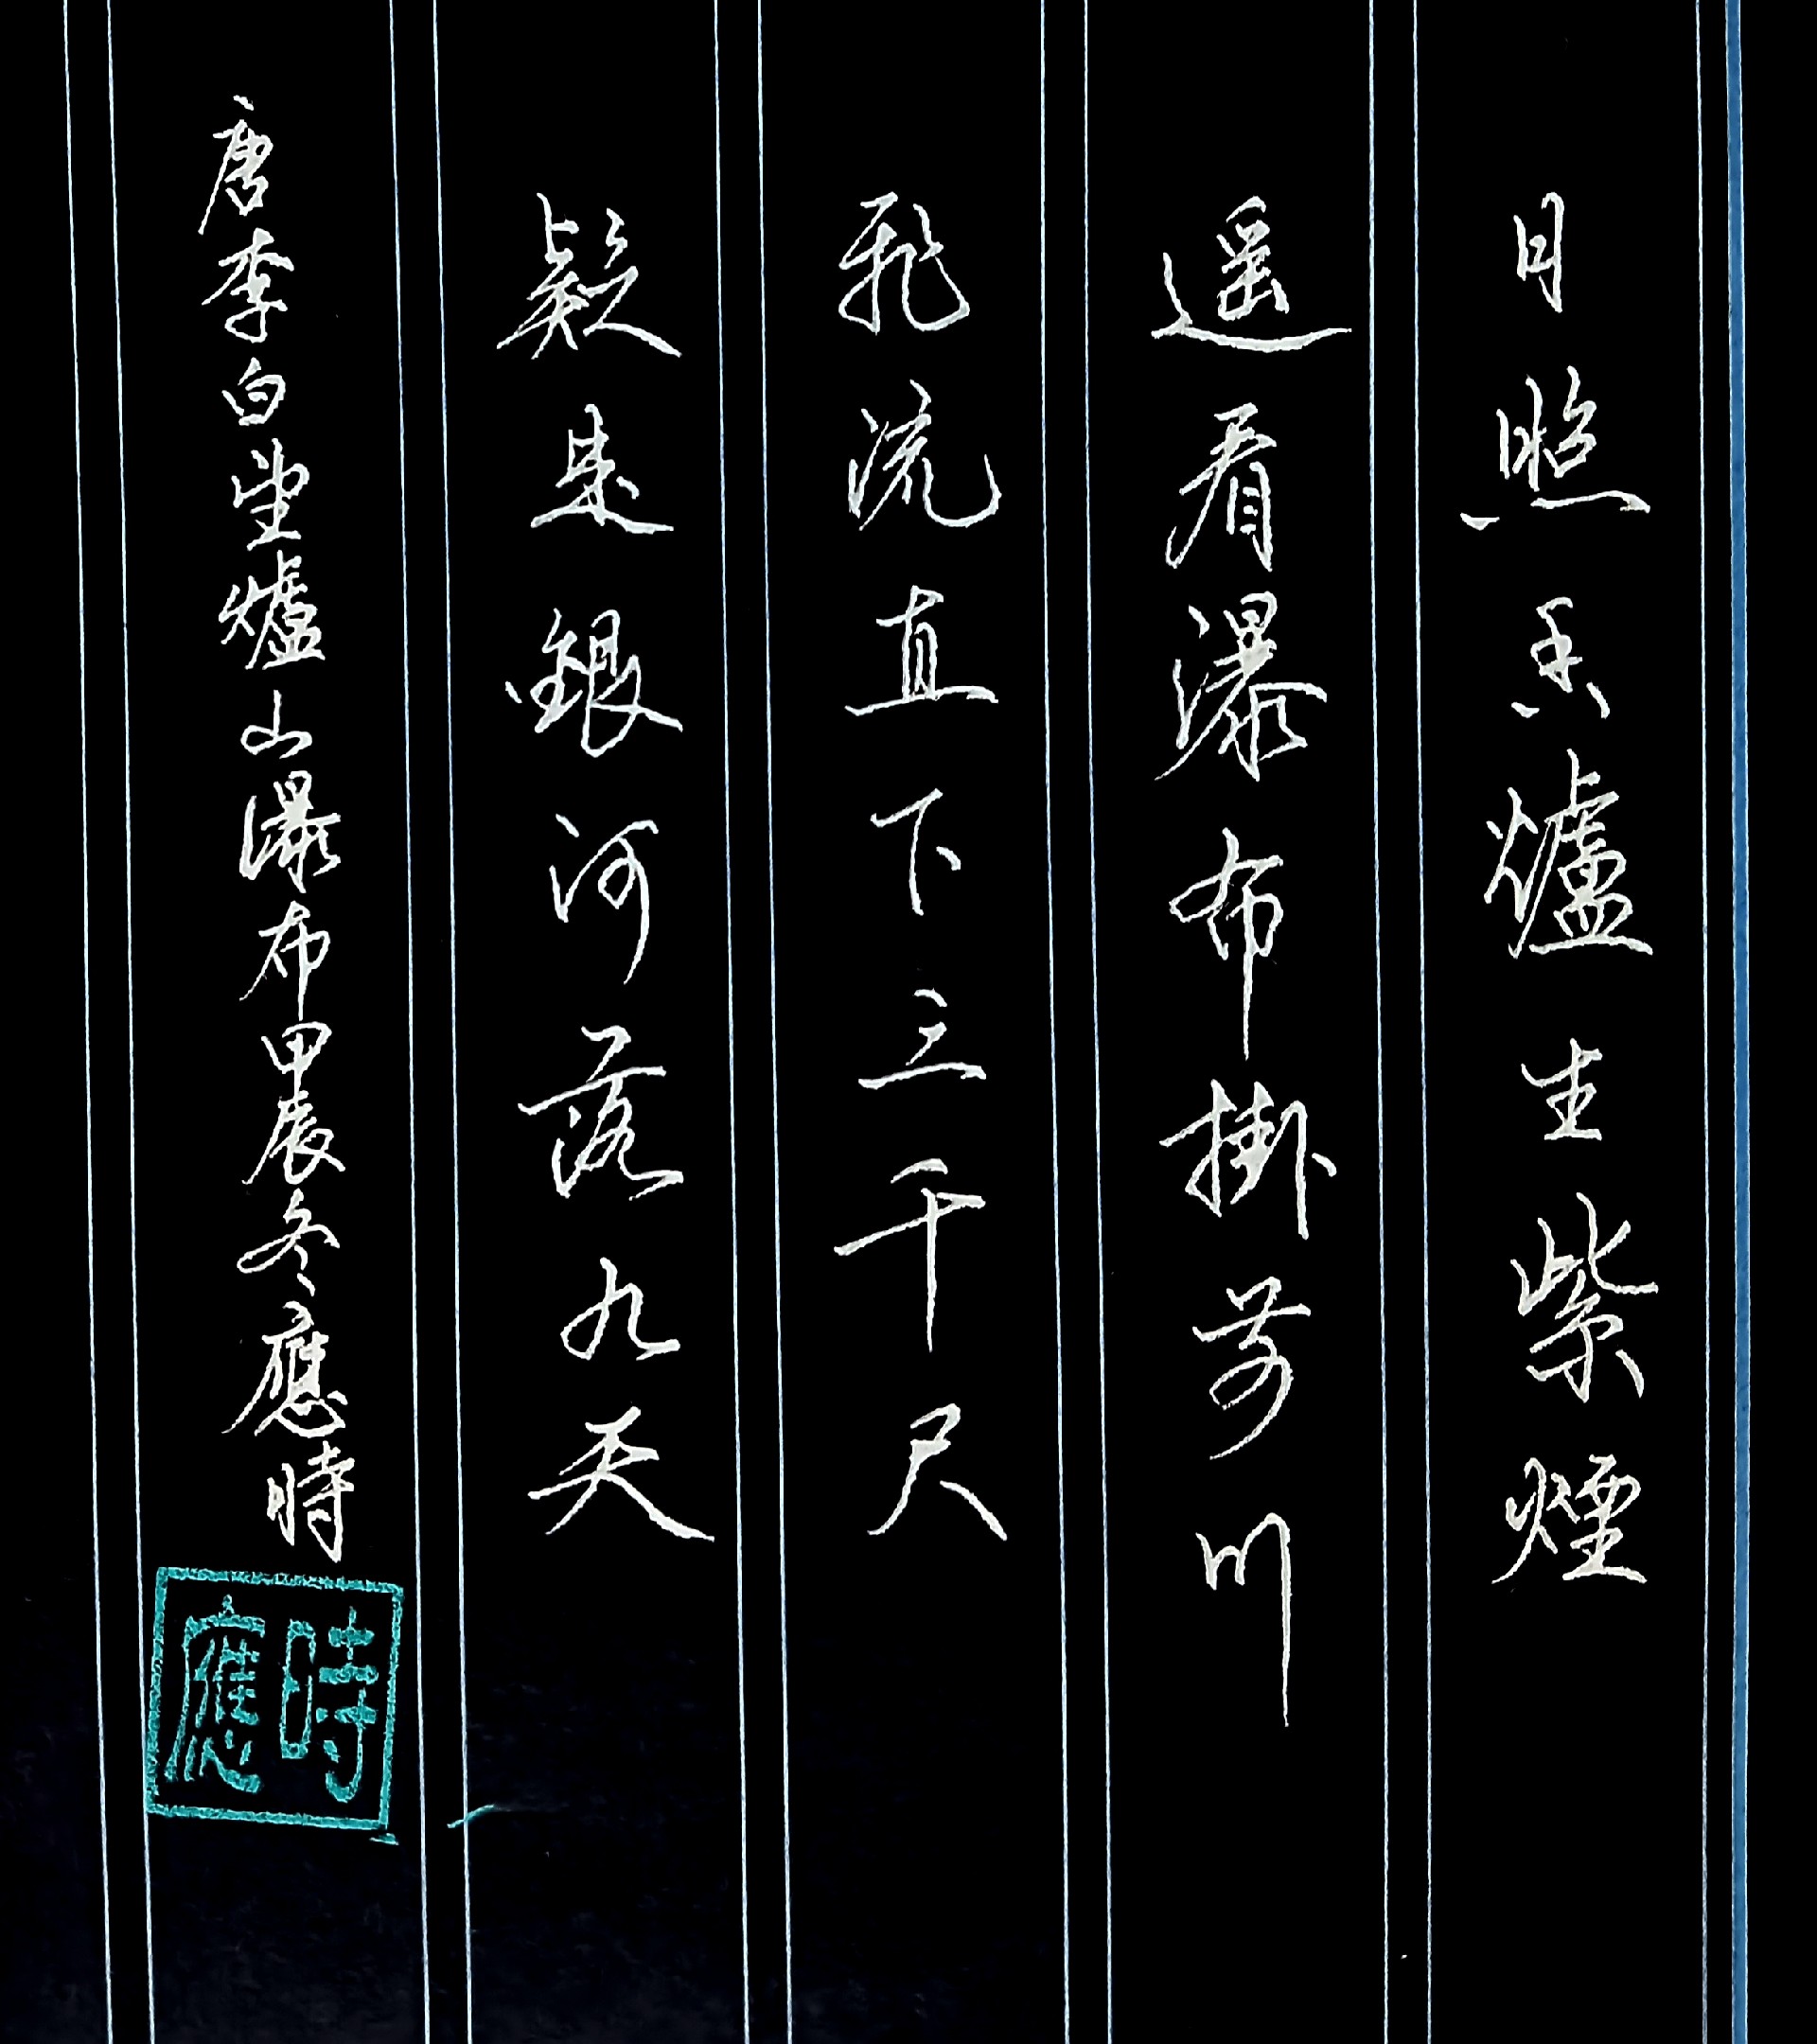 日照香爐生紫煙
遥看瀑布掛前川
飛流直下三千尺
疑是銀河落九天
唐李白望爐山瀑布甲辰冬應時
時應